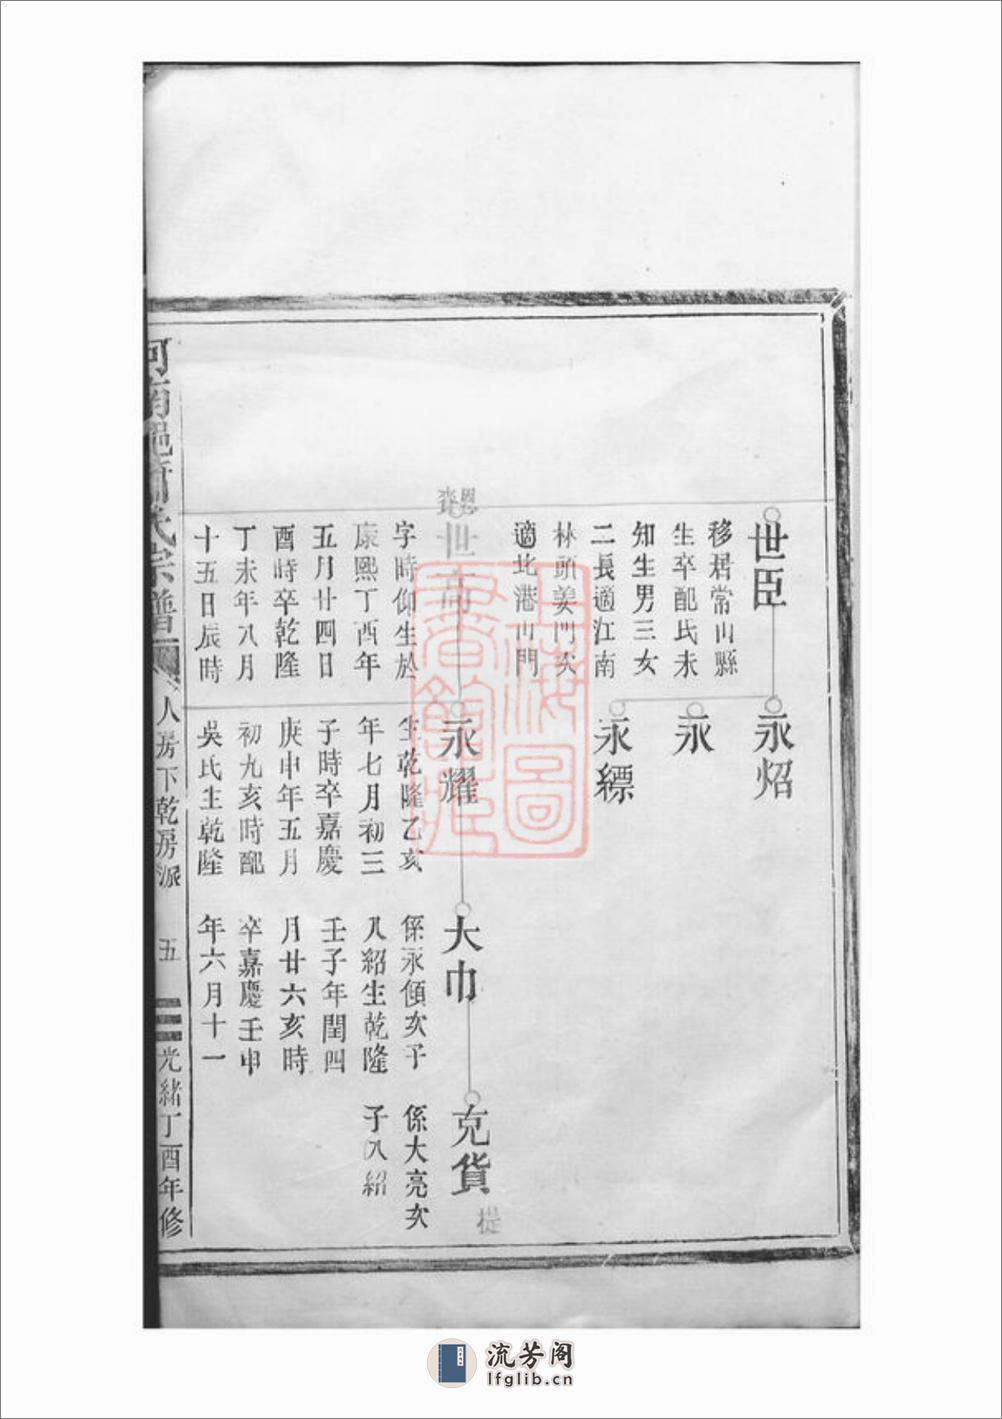 世臣
移居常山縣
生卒配氏未
知生男三女
二長適江南
林頭姜門次
適北港山門
永炤
永
永縹
世高
字時仰生於
康熙丁酉年
五月廿四日
酉時卒乾隆
丁未年八月
十五日辰時
永耀
生乾隆乙亥
年七月初三
子時卒嘉慶
庚申年五月
初九亥時配
吳氏生乾隆
大巾
係永傾次子
入紹生乾隆
壬子年閏四
月廿六亥時
卒嘉慶壬申
年六月十一
充貨
係大亮次
子入紹
提
人房下乾房派
五
光緒丁酉年修
上海圖書館藏
流芳阁
lfglib.cn